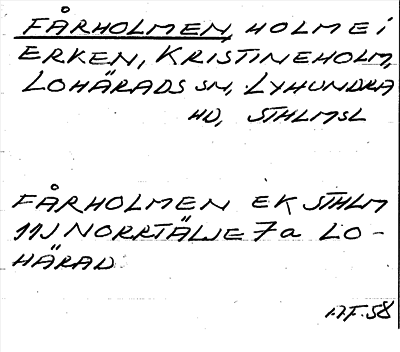 FÅRHOLMEN, HOLME i
ERKEN, KRISTINEHOLM,
LOHÄRADS SN, LYHUNDRA
HD, STHLMSL
FÅRHOLMEN EK STHLM
11J NORRTÄLJE 7a LO-
HÄRAD